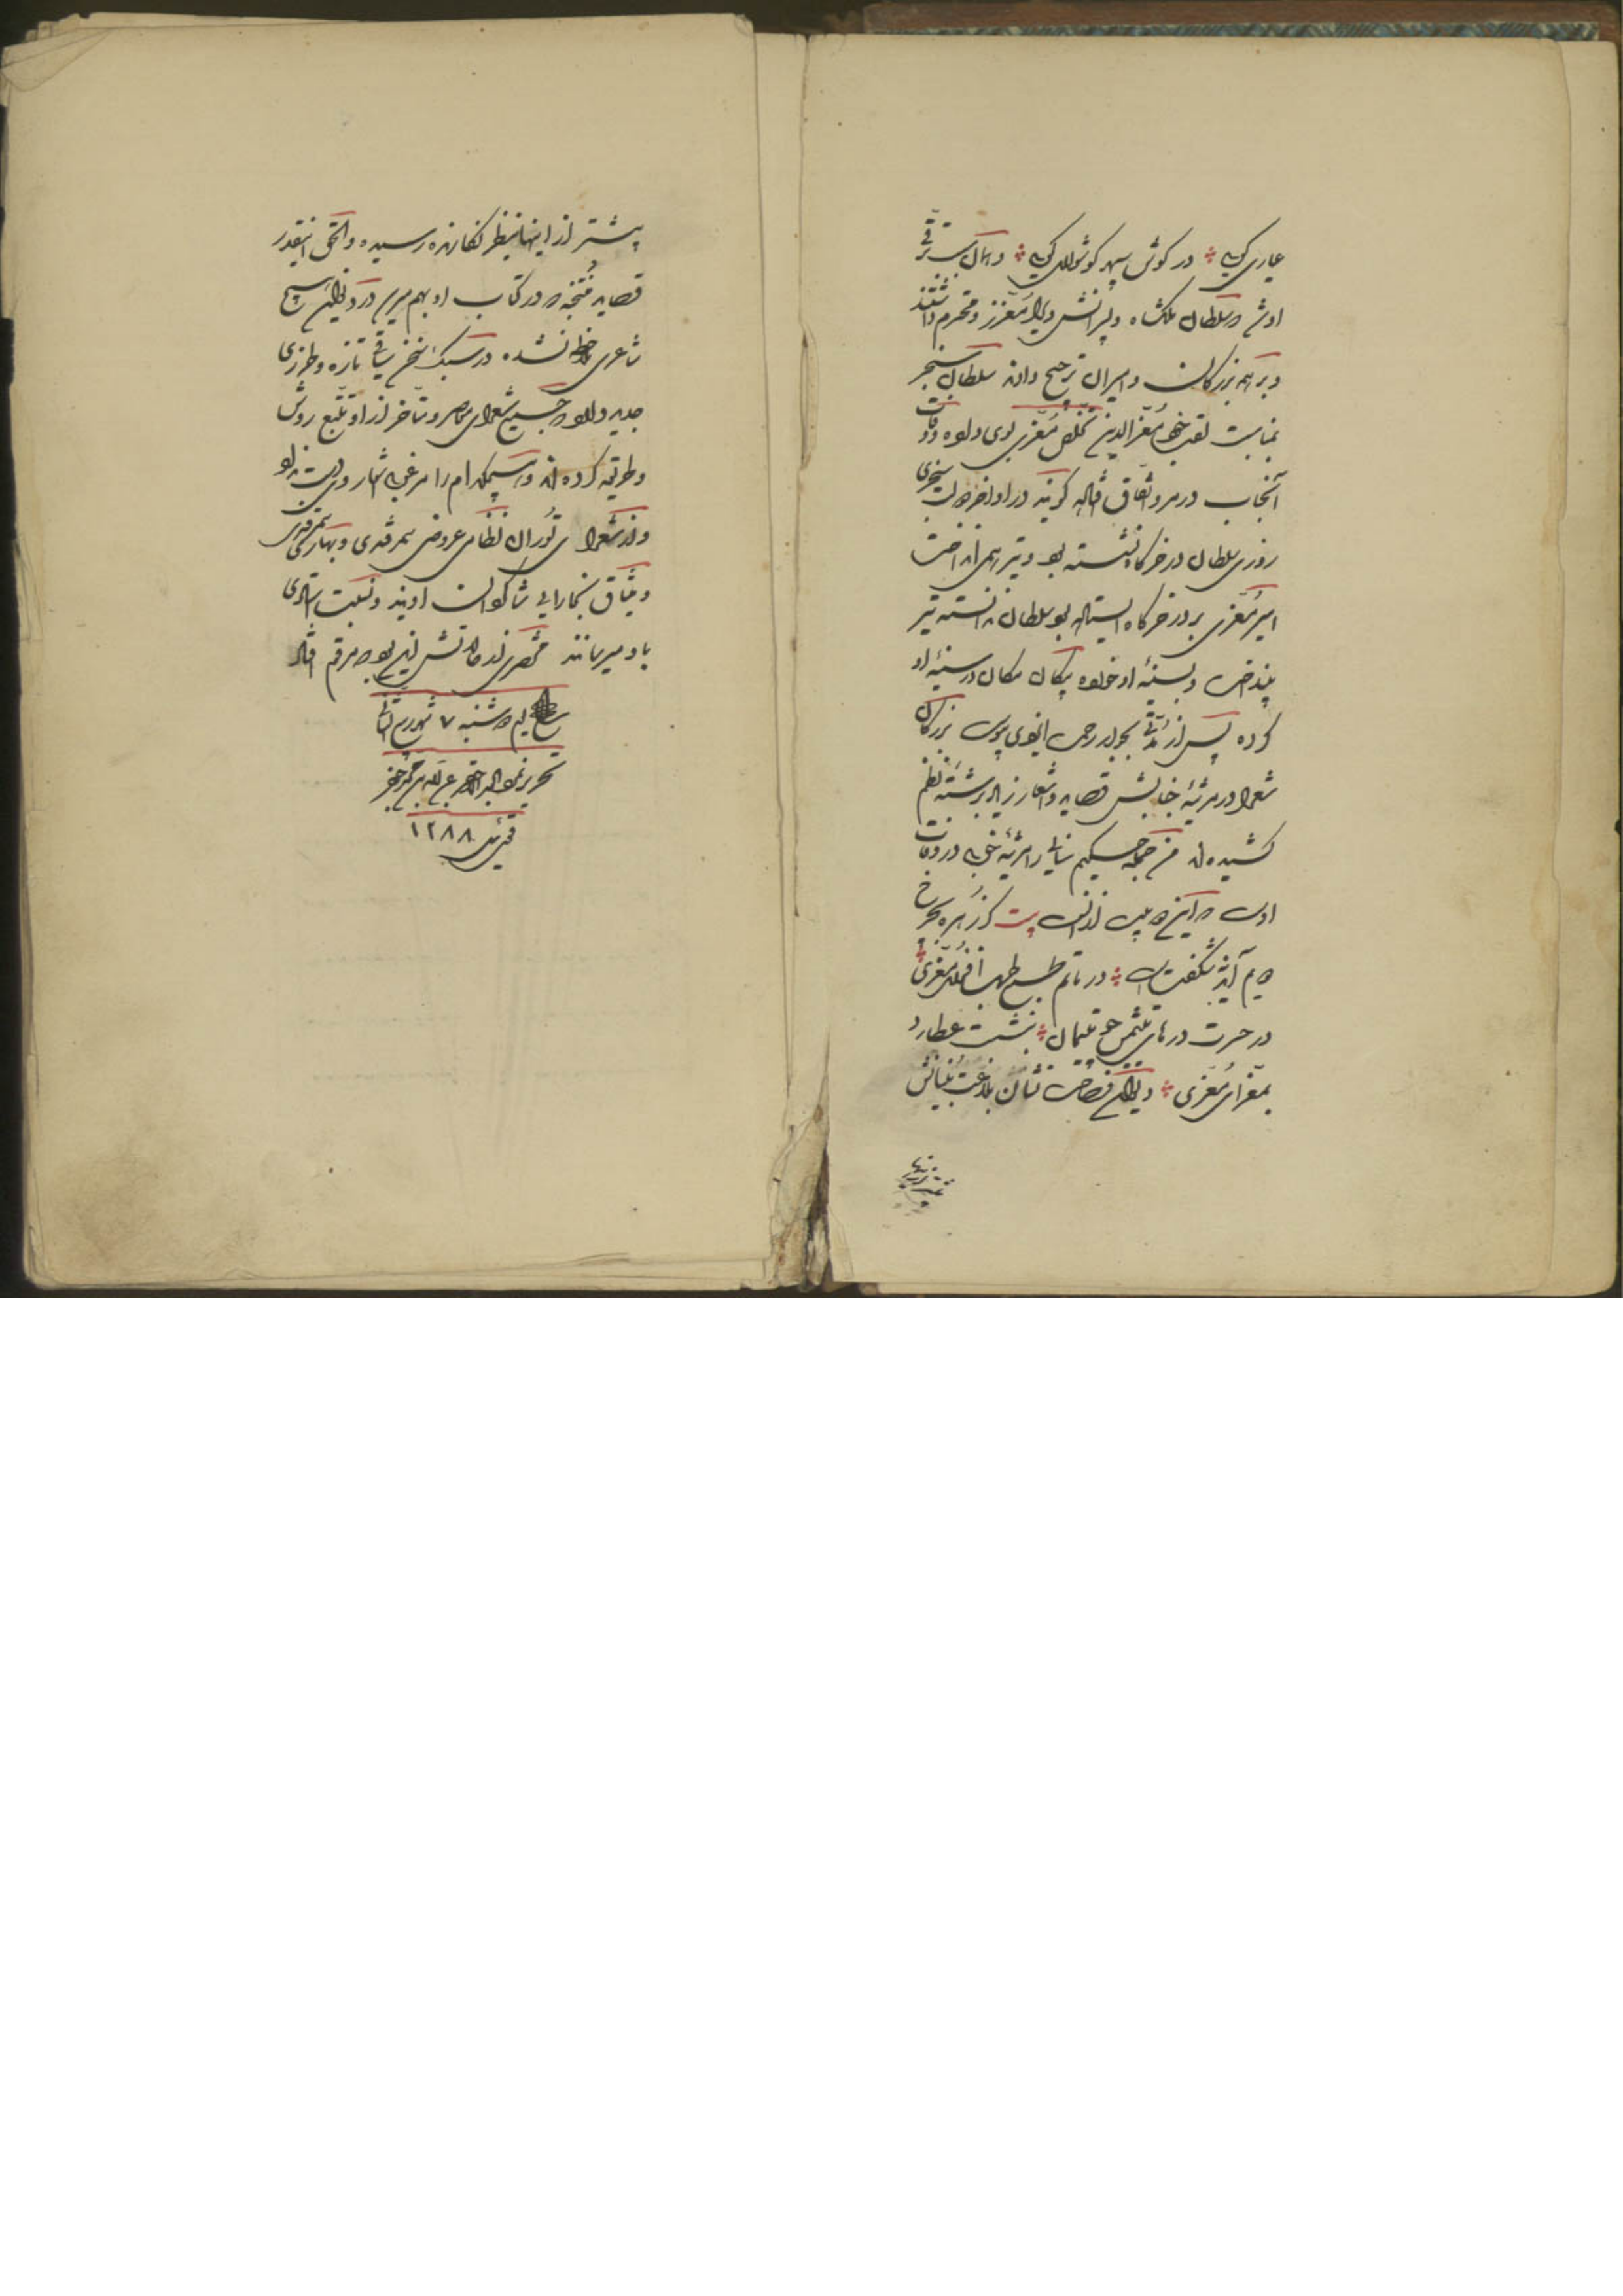 عاری گویی در گوش سپهر گوشواری گویی و همان سبب ترقی
او شد و سلطان ملکشاه و پسرانش ویرا معزز و محترم داشتند
و بر همه بزرگان و امیران ترجیح دادند سلطان سنجر
بمناسبت لقب خود معزالدین تخلص معزی بوی داده وفات
آنجناب در مرو اتفاق افتاده گویند در اواخر دولت سنجری
روزی سلطان در خرگاه نشسته بود و تیر همی انداخت
امیر معزی بر در خرگاه ایستاده بود سلطان ندانسته تیر
بینداخت و بسینه او خورده پیکان مکان در سینه او
کرده پس از مدتی بجوار رحمت ایزدی پیوست بزرگان
شعرا در مرثیه جنابش قصاید و اشعار زیاد برشته نظم
کشیده‌اند من جمله حکیم سنائی را مرثیه خوبی در وفات
اوست که این دو بیت از آنست بیت گر زهره بچرخ
دویم آید نشگفت در ماتم طبع طرب افزای معزی
در حسرت درهای یتیمش چو یتیمان بنشست عطارد
بمعزای معزی دیوان فصاحت نشان بلاغت بنیانش
بیشتر از اینها
بیشتر از اینها بنظر نگارنده رسیده و الحق اینقدر
قصاید منتخبه که در کتاب او بهم میرسد در دیوان هیچ
شاعری ملاحظه نشده در سبک سخن سیاقی تازه و طرزی
جدید دارد که جمیع شعرای معاصر و متأخر از او تتبع روش
و طریقه کرده‌اند و هیچکدام را مرغوبی اشعار وی دست نداد
و از شعرای توران نظامی عروضی سمرقندی و بهارکی سمرقندی
و میثاق بخارایی شاگردان اویند و نسبت شاگردی
باو میرسانند مختصری از حالاتش این بود که مرقم افتاد
یوم دوشنبه ۷ شهر ربیع الثانی
تحریر نمود العبد الاحقر
۱۲۸۸